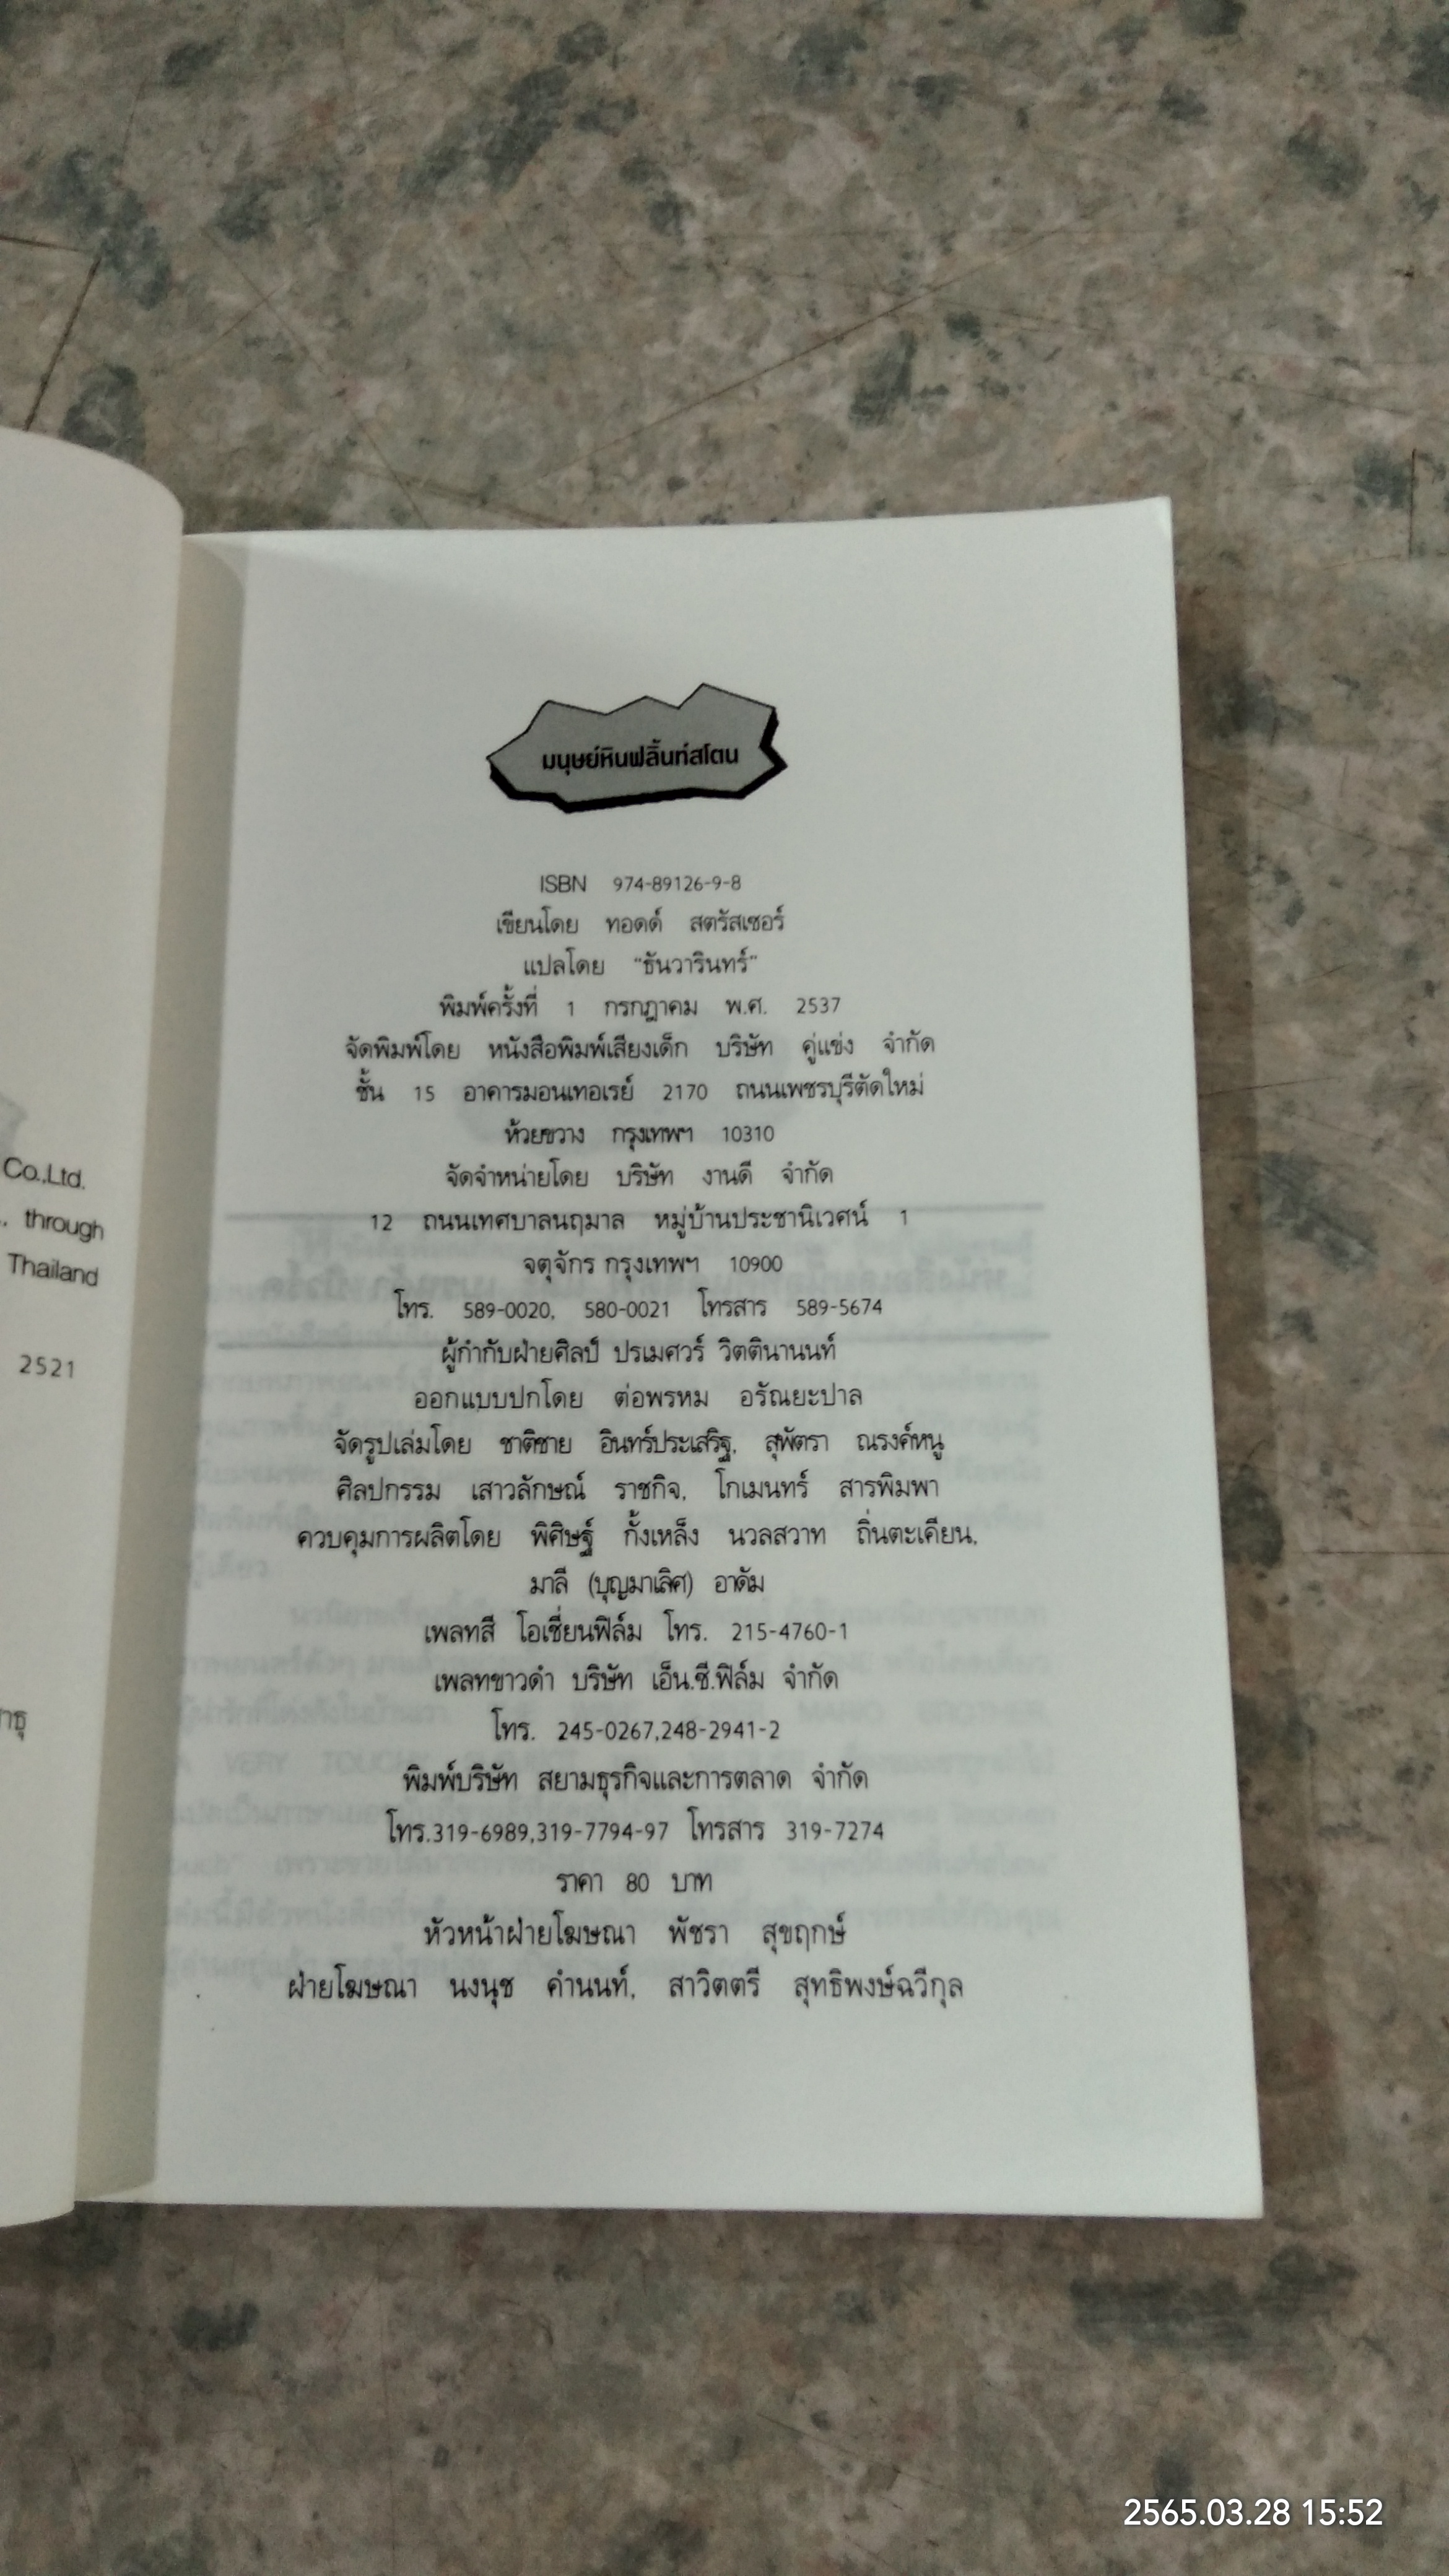 Co.,Ltd.
through
Thailand
2521
มนุษย์หินฟลิ้นท์สโตน
ISBN 974-89126-9-8
เขียนโดย ทอดด์ สตรัสเซอร์
แปลโดย "ธันวารินทร์"
พิมพ์ครั้งที่ 1 กรกฎาคม พ.ศ. 2537
จัดพิมพ์โดย หนังสือพิมพ์เสียงเด็ก บริษัท คู่แข่ง จำกัด
ชั้น 15 อาคารมอนเทอเรย์ 2170 ถนนเพชรบุรีตัดใหม่
ห้วยขวาง กรุงเทพฯ 10310
จัดจำหน่ายโดย บริษัท งานดี จำกัด
12 ถนนเทศบาลนฤมาล หมู่บ้านประชานิเวศน์ 1
จตุจักร กรุงเทพฯ 10900
โทร. 589-0020, 580-0021 โทรสาร 589-5674
ผู้กำกับฝ่ายศิลป์ ปรเมศวร์ วิตตินานนท์
ออกแบบปกโดย ต่อพรหม อรัณยะปาล
จัดรูปเล่มโดย ชาติชาย อินทร์ประเสริฐ, สุพัตรา ณรงค์หนู
ศิลปกรรม เสาวลักษณ์ ราชกิจ, โกเมนทร์ สารพิมพา
ควบคุมการผลิตโดย พิศิษฐ์ กั้งเหล็ง นวลสวาท ถิ่นตะเคียน,
มาลี (บุญมาเลิศ) อาดัม
เพลทสี โอเชี่ยนฟิล์ม โทร. 215-4760-1
เพลทขาวดำ บริษัท เอ็น.ซี.ฟิล์ม จำกัด
โทร. 245-0267,248-2941-2
พิมพ์บริษัท สยามธุรกิจและการตลาด จำกัด
โทร.319-6989,319-7794-97 โทรสาร 319-7274
ราคา 80 บาท
หัวหน้าฝ่ายโฆษณา พัชรา สุขฤกษ์
ฝ่ายโฆษณา นงนุช คำนนท์, สาวิตตรี สุทธิพงษ์ฉวีกุล
2565.03.28 15:52